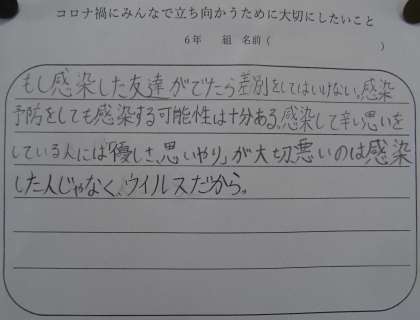 コロナ禍にみんなで立ち向かうために大切にしたいこと
6年　組　名前（　　　　　　　）
もし感染した友達がでたら差別をしてはいけない。感染
予防をしても感染する可能性は十分ある。感染して辛い思いを
している人には「優しさ、思いやり」が大切悪いのは感染
した人じゃなく、ウイルスだから。